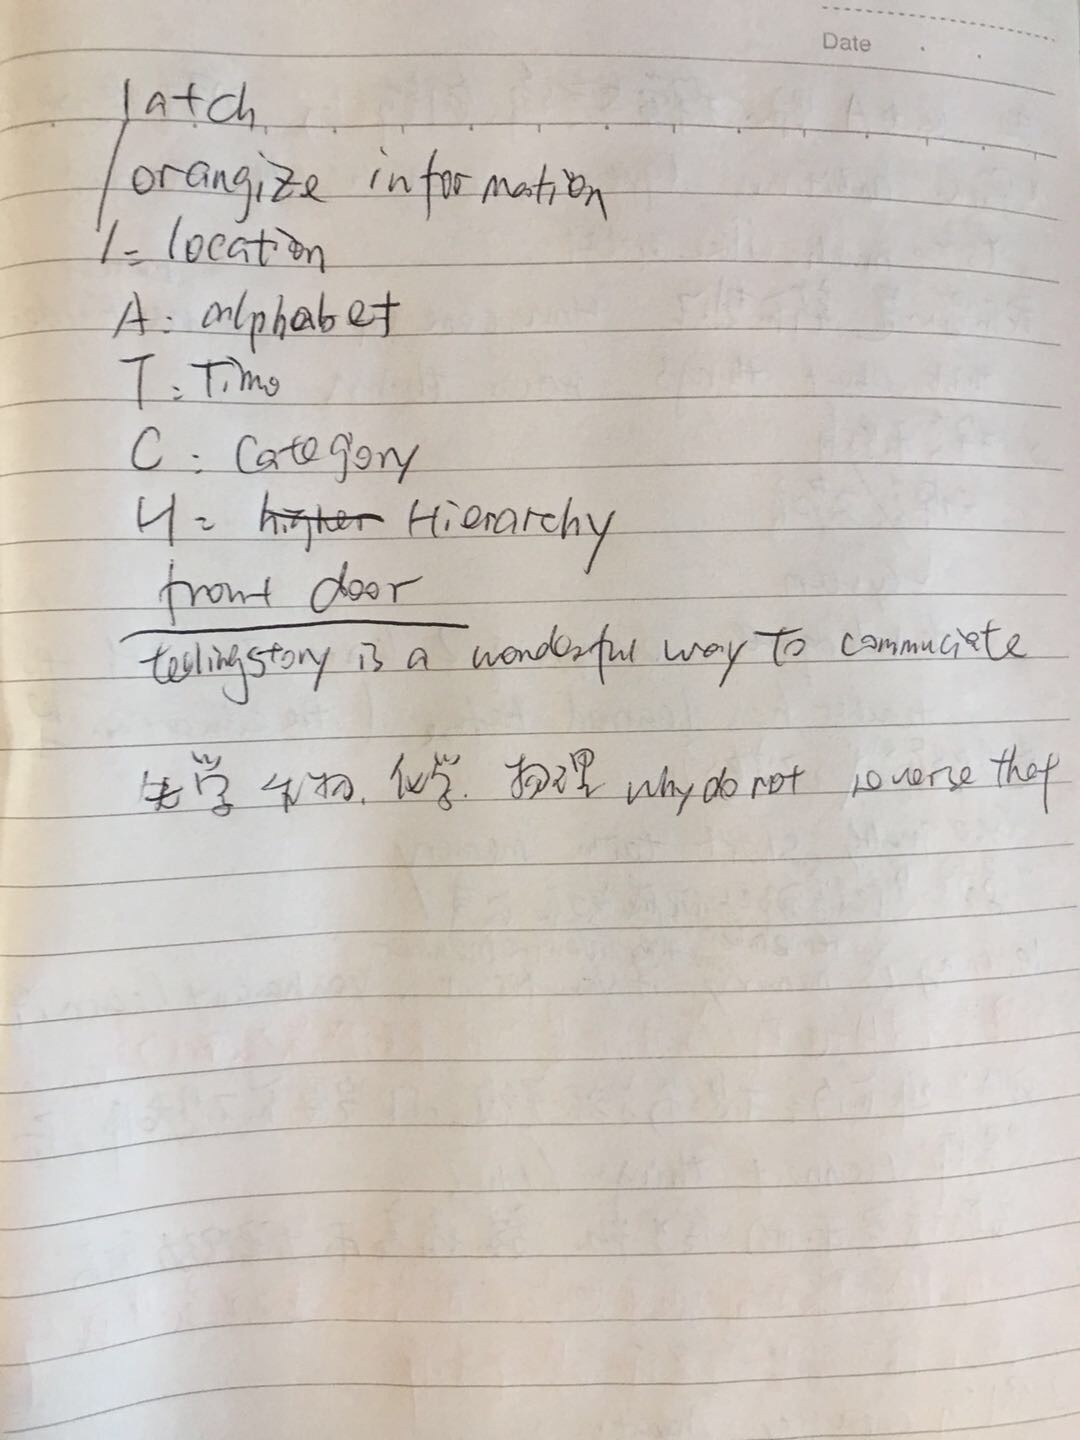 Date
latch
orangize information
l = location
A : alphabet
T : Time
C : Category
H = higher Hierarchy
front door
tellingstory is a wonderful way to commuciate
先学 生物. 化学. 物理 why do not reverse they